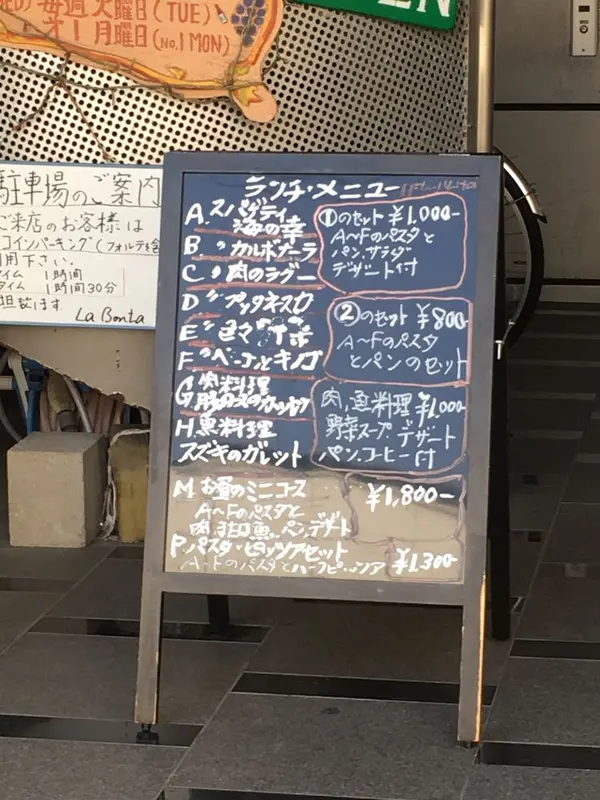 毎週火曜日(TUE)
オ1月曜日(No.1 MON)
EN
駐車場のご案内
ご来店のお客様は
コインパーキング(フォルテを含
用下さい。
タイム 1時間
タイム 1時間30分
担致します。
La Bonta
ランチ・メニュー
A. スパゲティ
海の幸
B 〃 カルボナーラ
C 〃 肉のラグー
D 〃 プッタネスカ
E 〃
F 〃 ベーコンとキノコ
G 肉料理
H 魚料理
スズキのガレット
①のセット ¥1,000-
A〜Fのパスタと
パン、サラダ
デザート付
②のセット ¥800-
A〜Fのパスタ
とパンのセット
肉、魚料理 ¥1,000
野菜スープ、デザート
パン、コーヒー付
M お昼のミニコース
¥1,800-
A〜Fのパスタと
肉、又は魚、パン、デザート
P. パスタ・ピッツアセット
¥1,300-
A〜Fのパスタとハーフピッツア